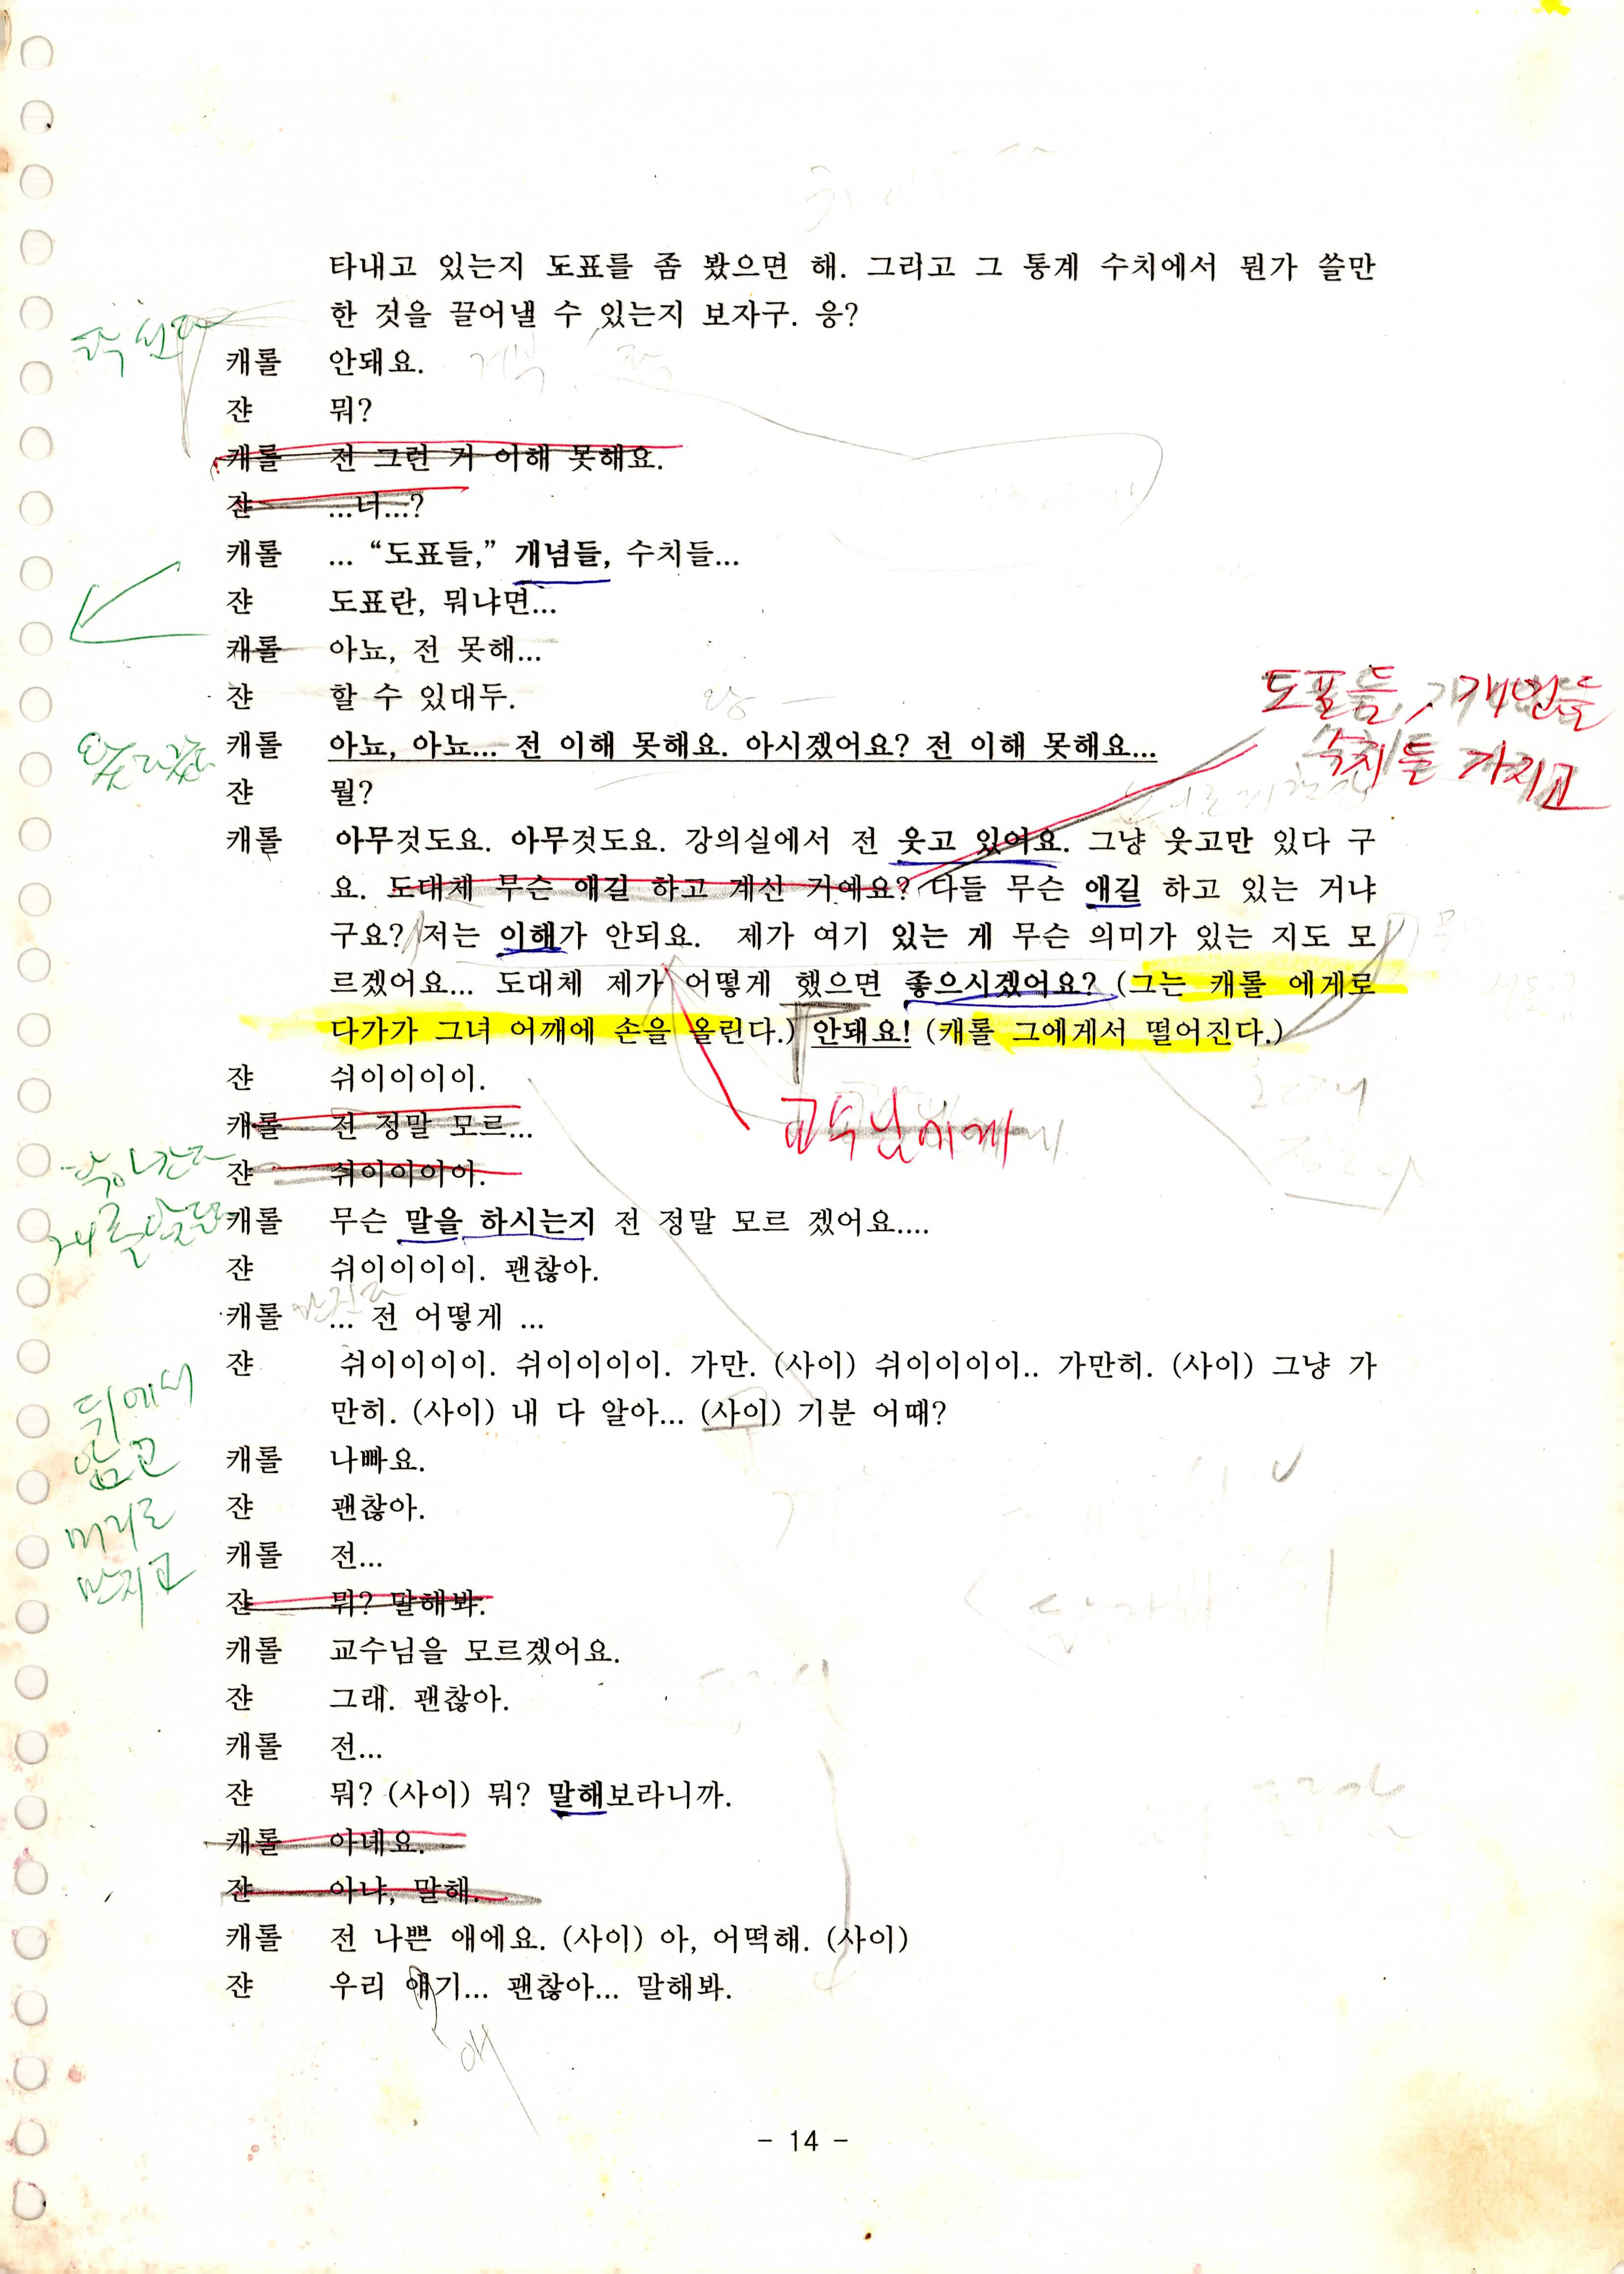 타내고 있는지 도표를 좀 봤으면 해. 그라고 그 통계 수치에서 뭔가 쓸만
한 것을 끌어낼 수 있는지 보자구. 응?
캐롤 안돼요.
쟌 뭐?
캐롤 전 그런 거 이해 못해요.
쟌 ...너...?
캐롤 ... “도표들,” 개념들, 수치들...
쟌 도표란, 뭐냐면...
캐롤 아뇨, 전 못해...
쟌 할 수 있대두.
도표들, 개념들
수치들 가지고
캐롤 아뇨, 아뇨... 전 이해 못해요. 아시겠어요? 전 이해 못해요...
쟌 뭘?
캐롤 아무것도요. 아무것도요. 강의실에서 전 웃고 있어요. 그냥 웃고만 있다 구
요. 도대체 무슨 얘길 하고 계신 거예요? 다들 무슨 얘길 하고 있는 거냐
구요? 저는 이해가 안되요. 제가 여기 있는 게 무슨 의미가 있는 지도 모
르겠어요... 도대체 제가 어떻게 했으면 좋으시겠어요? (그는 캐롤 에게로
다가가 그녀 어깨에 손을 올린다.) 안돼요! (캐롤 그에게서 떨어진다.)
쟌 쉬이이이이.
교수님에게
캐롤 전 정말 모르...
쟌 쉬이이이이.
캐롤 무슨 말을 하시는지 전 정말 모르 겠어요....
쟌 쉬이이이이. 괜찮아.
캐롤 ... 전 어떻게 ...
쟌 쉬이이이이. 쉬이이이이. 가만. (사이) 쉬이이이이.. 가만히. (사이) 그냥 가
만히. (사이) 내 다 알아... (사이) 기분 어때?
뒤에서
안고
머리로
만지고
캐롤 나빠요.
쟌 괜찮아.
캐롤 전...
쟌 뭐? 말해봐.
캐롤 교수님을 모르겠어요.
쟌 그래. 괜찮아.
캐롤 전...
쟌 뭐? (사이) 뭐? 말해보라니까.
캐롤 아녜요.
쟌 아냐, 말해.
캐롤 전 나쁜 애에요. (사이) 아, 어떡해. (사이)
쟌 우리 얘기... 괜찮아... 말해봐.
애
- 14 -